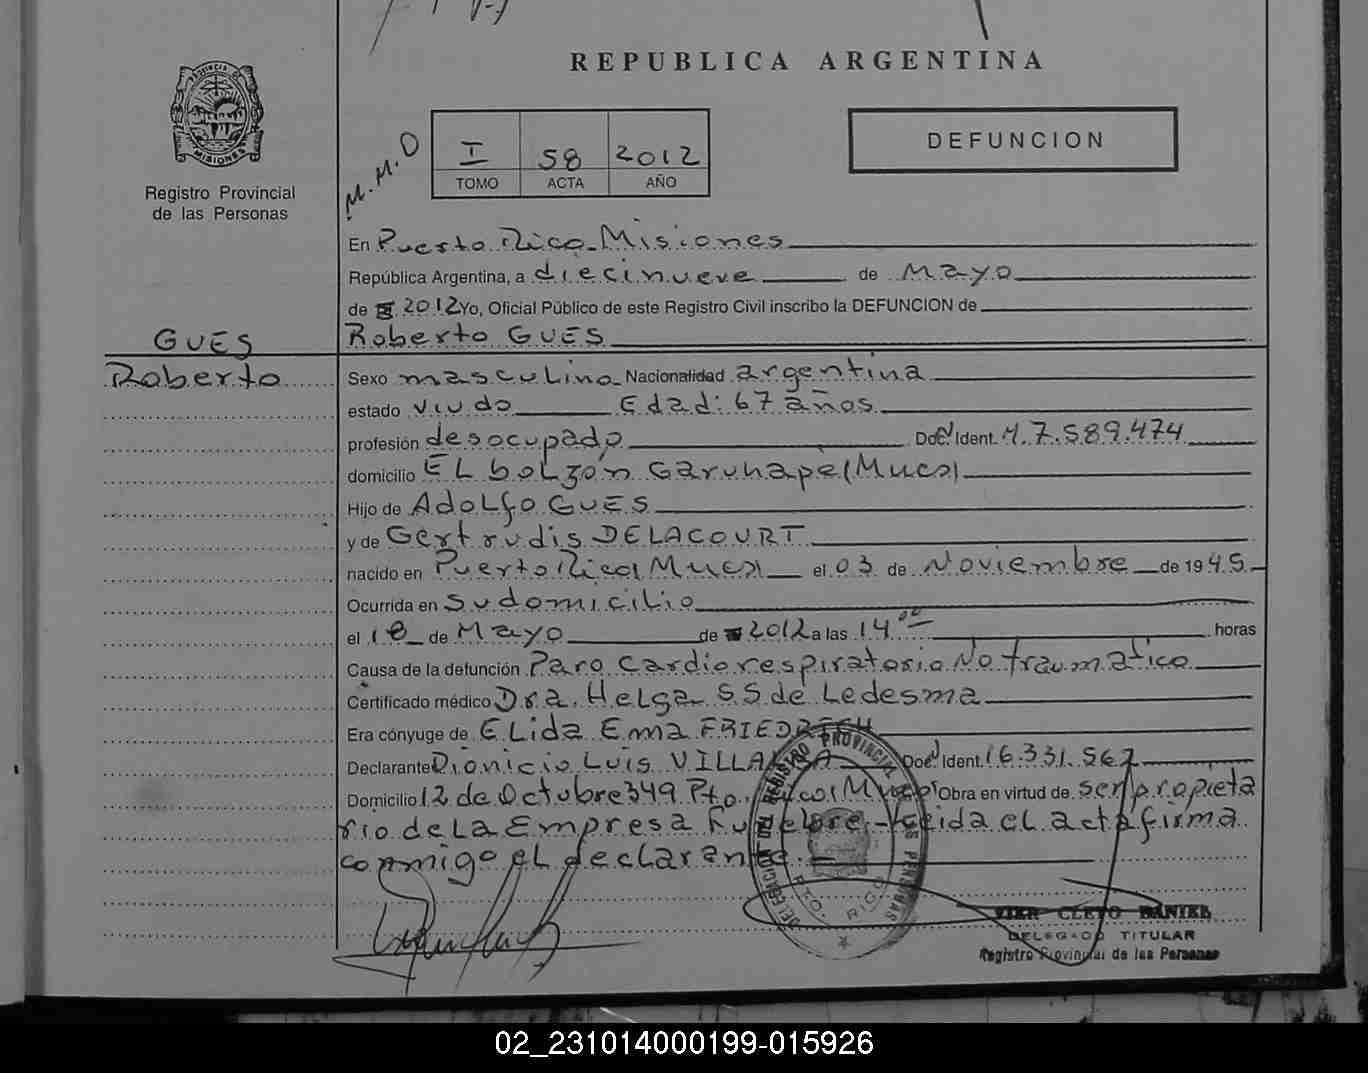 REPUBLICA ARGENTINA
PROVINCIA D
MISIONES
Registro Provincial
de las Personas
M.M.O
I 58 2012
TOMO ACTA AÑO
DEFUNCION
En Puerto Rico Misiones
República Argentina, a diecinueve de Mayo
de 2012 Yo, Oficial Público de este Registro Civil inscribo la DEFUNCION de
Roberto GUES
GUES
Roberto
Sexo masculino Nacionalidad argentina
estado viudo Edad: 67 años
profesión desocupado Doc. Ident. M. 7.589.474
domicilio EL bolzón Garuhapé (Mnes)
Hijo de Adolfo GUES
y de Gertrudis DELACOURT
nacido en Puerto Rico (Mnes) el 03 de Noviembre de 1945
Ocurrida en Su domicilio
el 18 de Mayo de 2012 a las 14 00 horas
Causa de la defunción Paro cardiorespiratorio No traumático
Certificado médico Dra. Helga S.S de Ledesma
Era cónyuge de Elida Ema FRIEDRICH
Declarante Dionicio Luis VILLALBA Doc. Ident. 16.331.567
Domicilio 12 de Octubre 349 Pto. Rico (Mnes) Obra en virtud de ser propieta
rio de La Empresa Leida el acta firma
conmigo el declarante
DELEGACION DEL REGISTRO PROVINCIAL DE LAS PERSONAS
PTO. RICO
CLETO DANIEL
DELEGADO TITULAR
Registro Provincial de las Personas
02_231014000199-015926